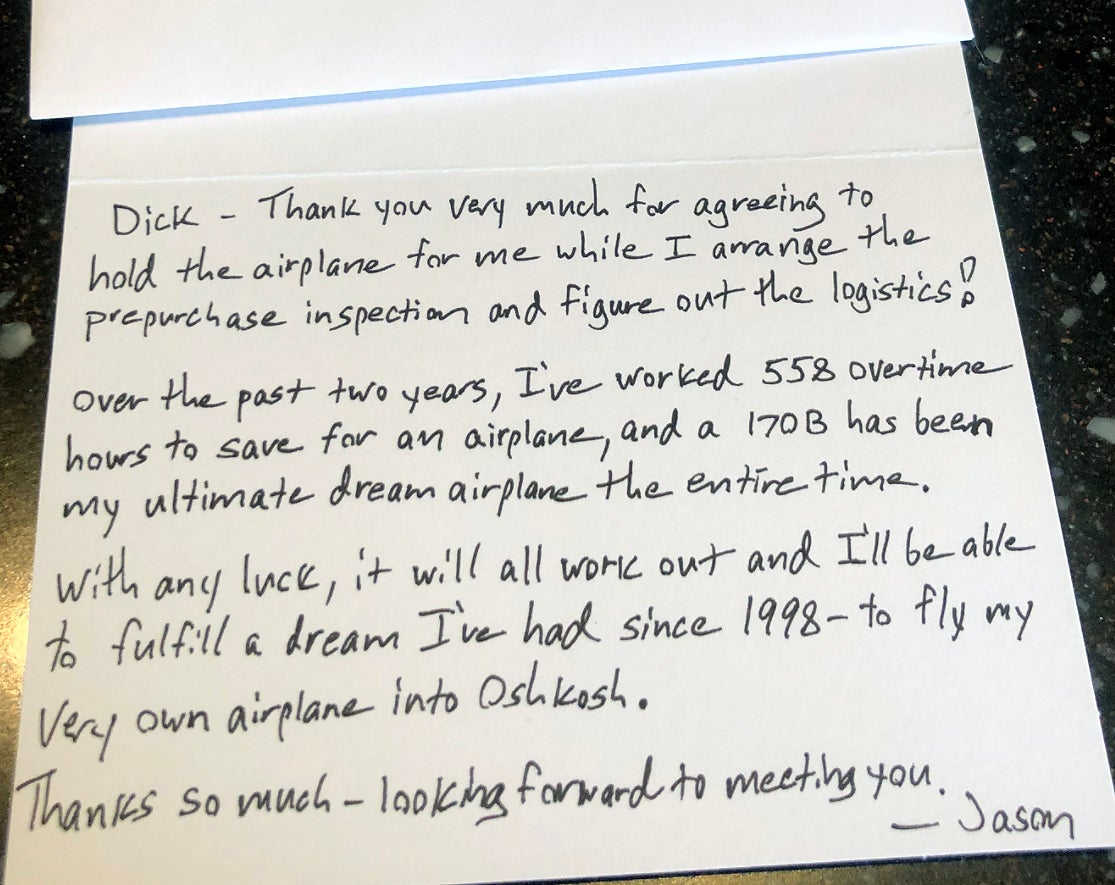 Dick - Thank you very much for agreeing to
hold the airplane for me while I arrange the
prepurchase inspection and figure out the logistics!
Over the past two years, I've worked 558 overtime
hours to save for an airplane, and a 170B has been
my ultimate dream airplane the entire time.
With any luck, it will all work out and I'll be able
to fulfill a dream I've had since 1998 - to fly my
very own airplane into Oshkosh.
Thanks so much - looking forward to meeting you.
- Jason